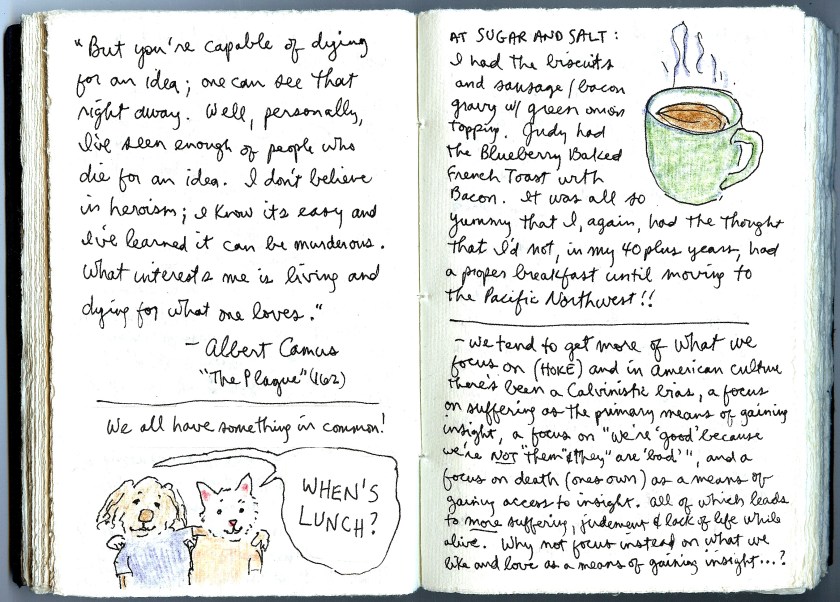 "But you're capable of dying
for an idea; one can see that
right away. Well, personally,
I've seen enough of people who
die for an idea. I don't believe
in heroism; I know its easy and
I've learned it can be murderous.
What interests me is living and
dying for what one loves."
- Albert Camus
"The Plague" (162)
We all have something in common!
WHEN'S
LUNCH?
AT SUGAR AND SALT:
I had the biscuits
and sausage/bacon
gravy w/ green onion
topping. Judy had
the Blueberry Baked
French Toast with
Bacon. It was all so
yummy that I, again, had the thought
that I'd not, in my 40 plus years, had
a proper breakfast until moving to
the Pacific Northwest!!
- We tend to get more of what we
focus on (HOKE) and in American culture
there's been a Calvinistic bias, a focus
on suffering as the primary means of gaining
insight, a focus on "we're 'good' because
we're NOT "them" & they" are 'bad'", and a
focus on death (ones own) as a means of
gaining access to insight. All of which leads
to more suffering, judement & lack of life while
alive. Why not focus instead on what we
like and love as a means of gaining insight...?